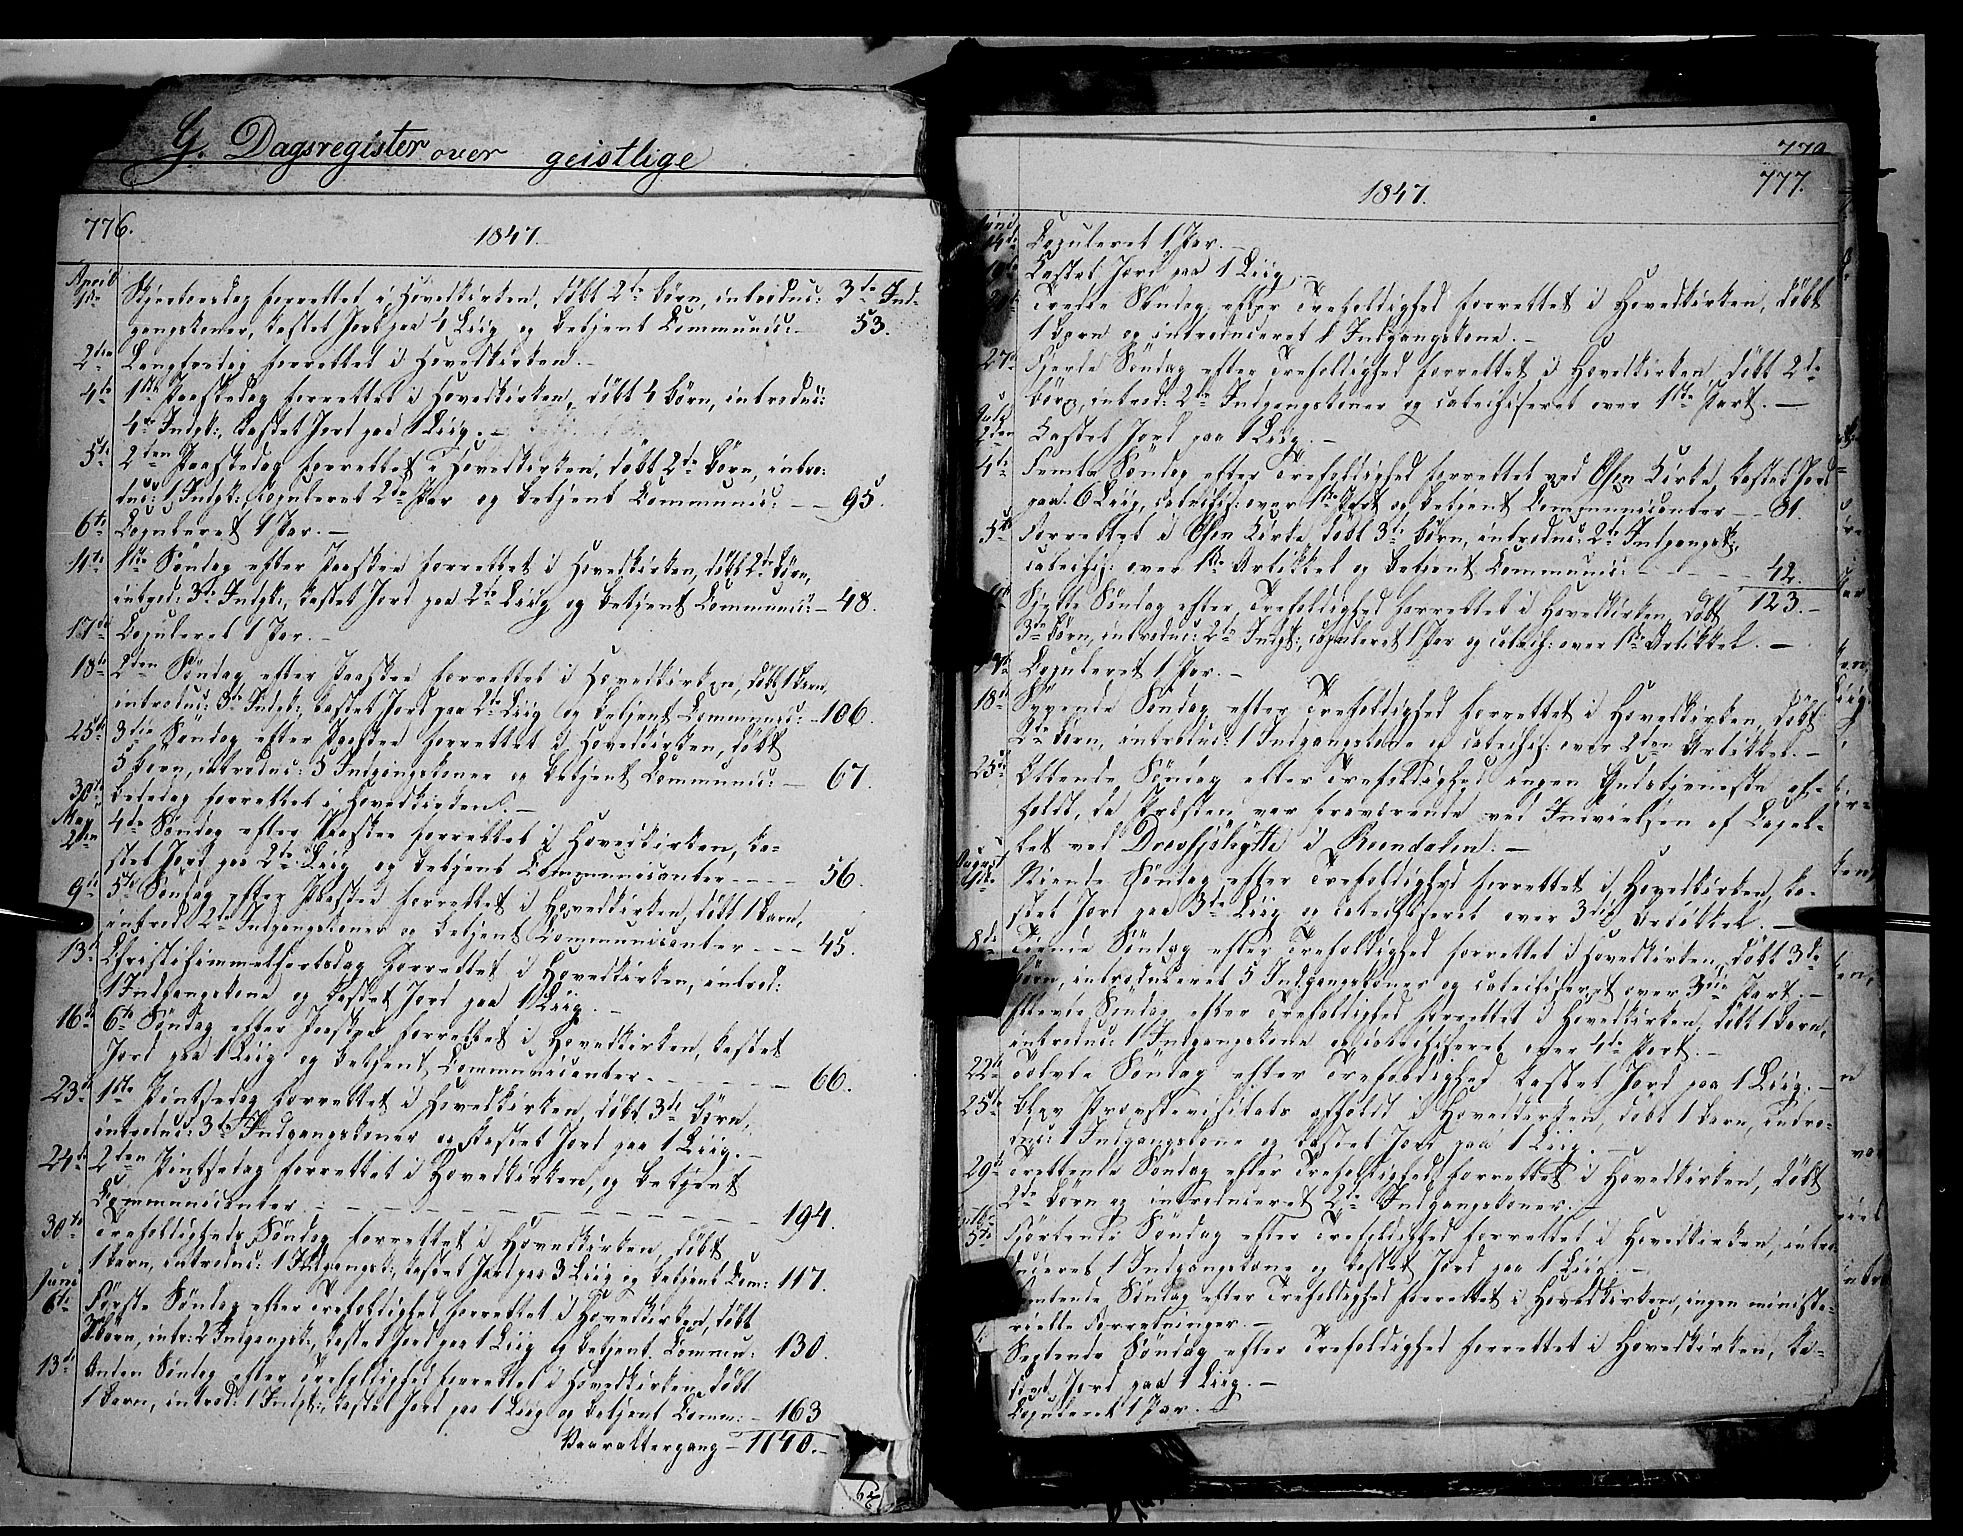 G. Dagsregister over geistlige
776.
1847.
April
1ste Skjertorsdag forrettet i Hovedkirken, døbt 2de Børn, introduc: 3de Ind-
gangskoner, kastet Jord paa 4 Liig og betjent Communic: — 53.
2den Langfredag forrettet i Hovedkirken. —
4de 1ste Paaskedag forrettet i Hovedkirken, døbt 4 Børn, introduc:
4re Indgk:, kastet Jord paa 1 Liig. —
5te 2den Paaskedag forrettet i Hovedkirken, døbt 2de Børn, intro-
duc: 1 Indgk:, copuleret 2de Par og betjent Communic: — — 95.
6te Copuleret 1 Par. —
11te 1ste Søndag efter Paaske forrettet i Hovedkirken, døbt 2de Børn,
introd: 3de Indgk:, kastet Jord paa 2de Liig og betjent Communic: — 48.
17de Copuleret 1 Par. —
18de 2den Søndag efter Paaske forrettet i Hovedkirken, døbt 1 Barn,
introduc: 3de Indgk:, kastet Jord paa 2de Liig og betjent Communic: — 106.
25de 3die Søndag efter Paaske forrettet i Hovedkirken, døbt
5 Børn, introduc: 5 Indgangskoner og betjent Communic: — 67.
30te Bededag forrettet i Hovedkirken. —
May
2den 4de Søndag efter Paaske forrettet i Hovedkirken, ka-
stet Jord paa 2de Liig og betjent Communicanter — — — 56.
9de 5te Søndag efter Paaske forrettet i Hovedkirken, døbt 1 Barn,
introd: 2de Indgangskoner og betjent Communicanter — — — 45.
13de Christihimmelfartsdag forrettet i Hovedkirken, introd:
1 Indgangskone og kastet Jord paa 1 Liig. —
16de 6te Søndag efter Paaske forrettet i Hovedkirken, kastet
Jord paa 1 Liig og betjent Communicanter — — — — — 66.
23de 1ste Pintsedag forrettet i Hovedkirken, døbt 3de Børn,
introduc: 3de Indgangskoner og kastet Jord paa 1 Liig. —
24de 2den Pintsedag forrettet i Hovedkirken, og betjent
Communicanter — — — — — — — — — — 194.
30te Trefoldigheds Søndag forrettet i Hovedkirken, døbt
1 Barn, introduc: 1 Indgangsk:, kastet Jord paa 3 Liig og betjent Com: 117.
Juni
6te Første Søndag efter Trefoldighed forrettet i Hovedkirken, døbt
3 Børn, intr: 2 Indgangsk:, kastet Jord paa 1 Liig og betjent Commu: 130.
13de Anden Søndag efter Trefoldighed forrettet i Hovedkirken, døbt
1 Barn, introd: 1 Indgk:, kastet Jord paa 1 Liig og betjent Comm: — 163
Vaaraltergang — 1140. —
779
777.
1847.
Juni
14de Copuleret 1 Par. —
Kastet Jord paa 1 Liig. —
Tredie Søndag efter Trefoldighed forrettet i Hovedkirken, døbt
1 Barn og introduceret 1 Indgangskone. —
27de Fjerde Søndag efter Trefoldighed forrettet i Hovedkirken, døbt 2de
Børn, introd: 2de Indgangskoner og catechiseret over 1ste Part. —
Juli
2den Kastet Jord paa 1 Liig. —
4de Femte Søndag efter Trefoldighed forrettet ved Øsen Kirke, kastet Jord
paa 6 Liig, catechis: over 1ste Part og betjent Communicanter — — 81.
5te Forrettet i Øsen Kirke, døbt 3de Børn, introduc: 2de Indgangsk,
catechis: over 1ste Artikkel og betjent Communic: — — — — 42.
123. —
Sjette Søndag efter Trefoldighed forrettet i Hovedkirken, døbt
3de Børn, introduc: 2de Indgk:, copuleret 1 Par og catech: over 1ste Artikkel. —
Copuleret 1 Par. —
18de Syvende Søndag efter Trefoldighed forrettet i Hovedkirken, døbt
2de Børn, introduc: 1 Indgangskone og catechis: over 2den Artikkel. —
25de Ottende Søndag efter Trefoldighed ingen Gudstjeneste af-
holdt, da Præsten var fraværende ved Indvielsen af Capel-
let ved Drevsjøhytte i Rendalen. —
August
1ste Niende Søndag efter Trefoldighed forrettet i Hovedkirken, ka-
stet Jord paa 3de Liig og catechiseret over 3die Artikkel. —
8de Tiende Søndag efter Trefoldighed forrettet i Hovedkirken, døbt 3de
Børn, introduceret 5 Indgangskoner og catechiseret over 3die Part. —
Ellevte Søndag efter Trefoldighed forrettet i Hovedkirken, døbt 1 Barn,
introduc: 1 Indgangskone og catechiseret over 4de Part. —
22de Tolvte Søndag efter Trefoldighed kastet Jord paa 1 Liig. —
25de Blev Provstevisitats afholdt i Hovedkirken, døbt 1 Barn, intro-
duc: 1 Indgangskone og kastet Jord paa 1 Liig. —
29de Trettende Søndag efter Trefoldighed forrettet i Hovedkirken, døbt
2de Børn og introduceret 2de Indgangskoner. —
5te Fjortende Søndag efter Trefoldighed forrettet i Hovedkirken, intro-
duceret 1 Indgangskone og kastet Jord paa 1 Liig. —
Femtende Søndag efter Trefoldighed forrettet i Hovedkirken, ingen ministe-
rielle Forretninger. —
Sextende Søndag efter Trefoldighed forrettet i Hovedkirken, ka-
stet Jord paa 1 Liig. —
Copuleret 1 Par. —